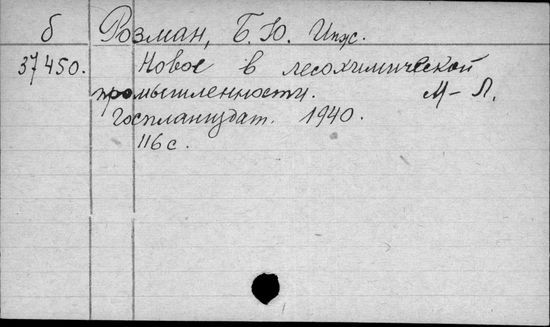 б Розман, Б. Ю. Инж.
37450. Новое в лесохимической
промышленности. М-Л.
Госпланиздат. 1940.
116 с.